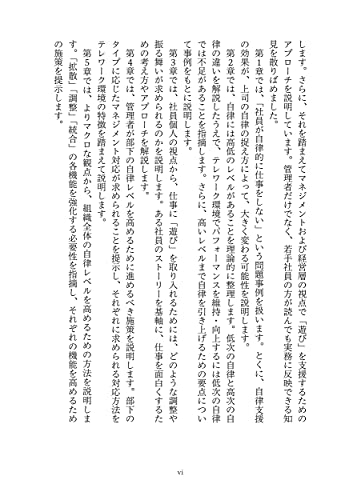 します。さらに、それを踏まえてマネジメントおよび経営層の視点で「遊び」を支援するための
アプローチを説明しています。管理者だけでなく、若手社員の方が読んでも実務に反映できる知
見を散りばめました。
第1章では、「社員が自律的に仕事をしない」という問題事例を扱います。とくに、自律支援
の効果が、上司の自律の捉え方によって、大きく変わる可能性を説明します。
第2章では、自律には高低のレベルがあることを理論的に整理します。低次の自律と高次の自
律の違いを解説したうえで、テレワーク環境でパフォーマンスを維持・向上するには低次の自律
では不足があることを指摘します。さらに、高いレベルまで自律を引き上げるための要点につい
て事例をもとに説明します。
第3章では、社員個人の視点から、仕事に「遊び」を取り入れるためには、どのような調整や
振る舞いが求められるのかを説明します。ある社員のストーリーを基軸に、仕事を面白くするた
めの考え方やアプローチを解説します。
第4章では、管理者が部下の自律レベルを高めるために進めるべき施策を説明します。部下の
タイプに応じたマネジメント対応が求められることを提示し、それぞれに求められる対応方法を
テレワーク環境の特徴を踏まえて説明します。
第5章では、よりマクロな観点から、組織全体の自律レベルを高めるための方法を説明しま
す。「拡散」「調整」「統合」の各機能を強化する必要性を指摘し、それぞれの機能を高めるため
の施策を提示します。
vi